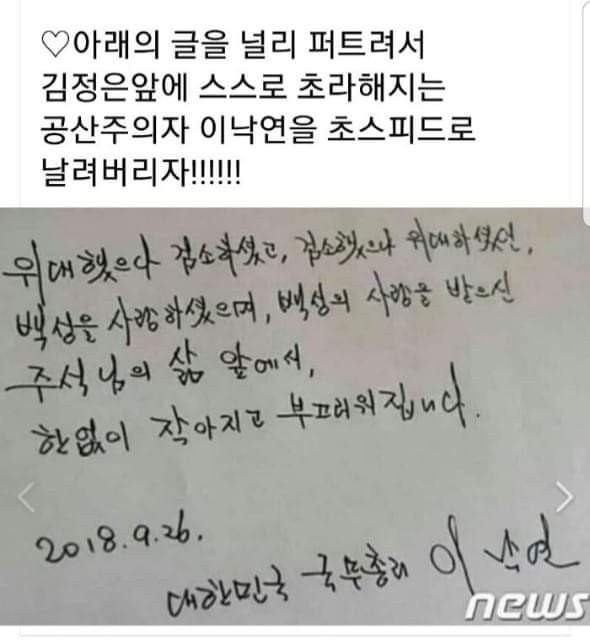 ♡아래의 글을 널리 퍼트려서
김정은앞에 스스로 초라해지는
공산주의자 이낙연을 초스피드로
날려버리자!!!!!!
위대했으나 검소하셨고, 검소했으나 위대하셨던,
백성을 사랑하셨으며, 백성의 사랑을 받으신
주석님의 삶 앞에서,
한없이 작아지고 부끄러워집니다.
2018.9.26.
대한민국 국무총리 이낙연
news